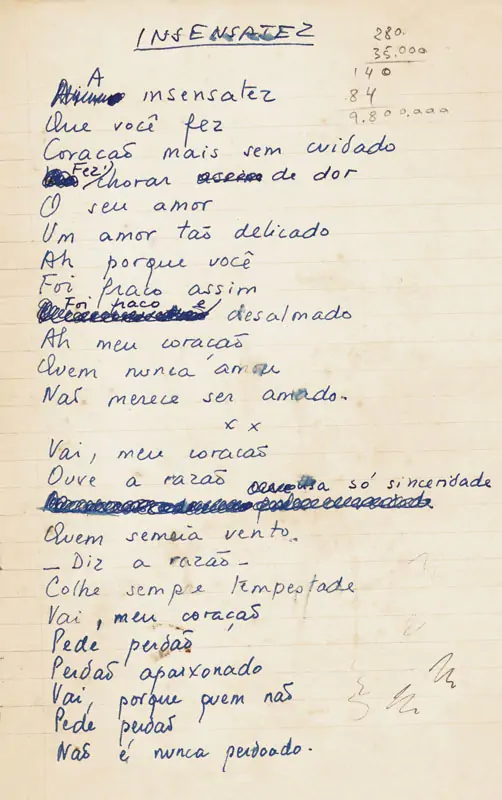 INSENSATEZ
280.
35.000
140
84
9.800.000
A insensatez
Que você fez
Coração mais sem cuidado
Fez chorar de dor
O seu amor
Um amor tão delicado
Ah porque você
Foi fraco assim
Foi fraco e desalmado
Ah meu coração
Quem nunca amou
Não merece ser amado.
x x
Vai, meu coração
Ouve a razão
usa só sinceridade
Quem semeia vento.
- Diz a razão -
Colhe sempre tempestade
Vai, meu coração
Pede perdão
Perdão apaixonado
Vai, porque quem não
Pede perdão
Não é nunca perdoado.